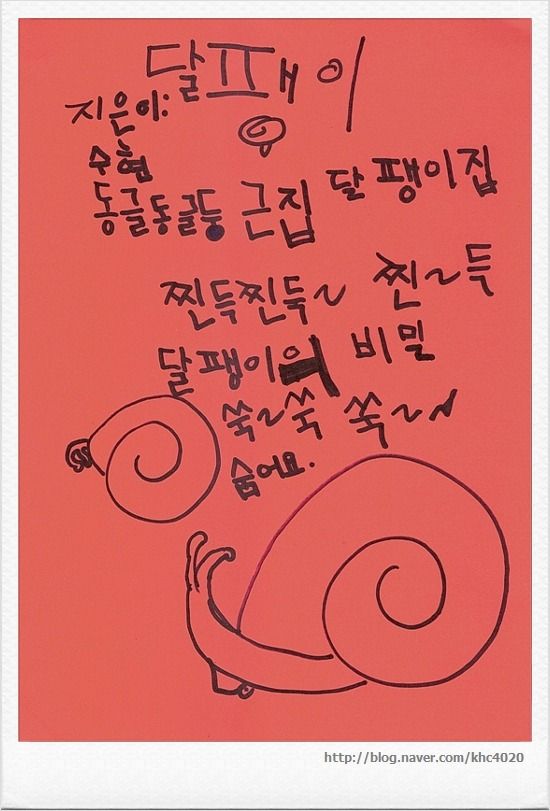 달팽이
지은이:
수현
동글동글둥 근집 달팽이집
찐득찐득~ 찐~득
달팽이의 비밀
쑥~쑥 쑥~~
숨어요.
http://blog.naver.com/khc4020